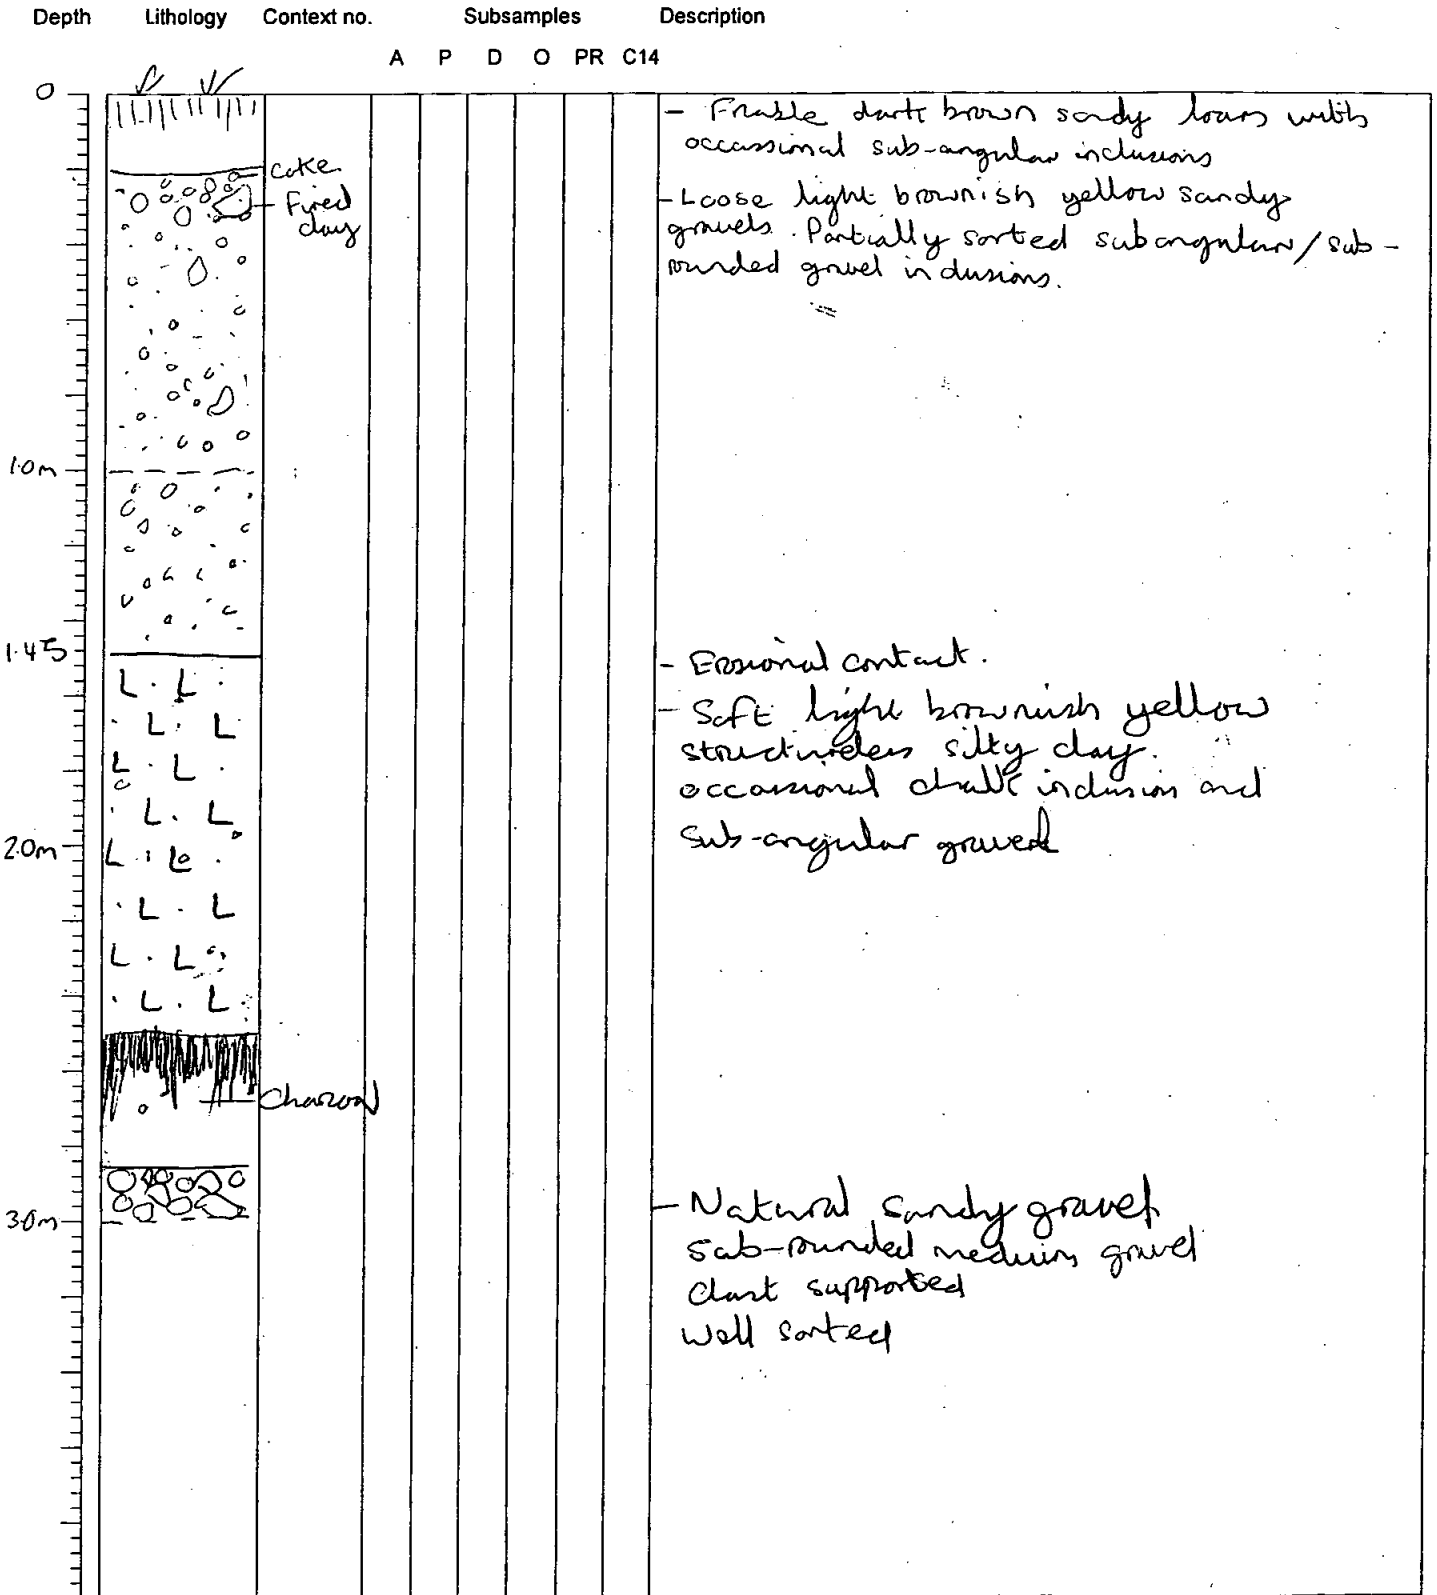 Depth Lithology Context no. Subsamples Description
A P D O PR C14
0
- Friable dark brown sandy loam with
occassional sub-angular inclusions
coke
Fired
clay
- Loose light brownish yellow sandy
gravels. Partially sorted subangular/sub-
rounded gravel inclusions.
1.0m
1.45
- Erosional contact.
- Soft light brownish yellow
structureless silty clay.
occassional chalk inclusion and
Sub-angular gravel
2.0m
Charcoal
- Natural Sandy gravel
3.0m
Sub-rounded medium gravel
Clast supported
Well sorted